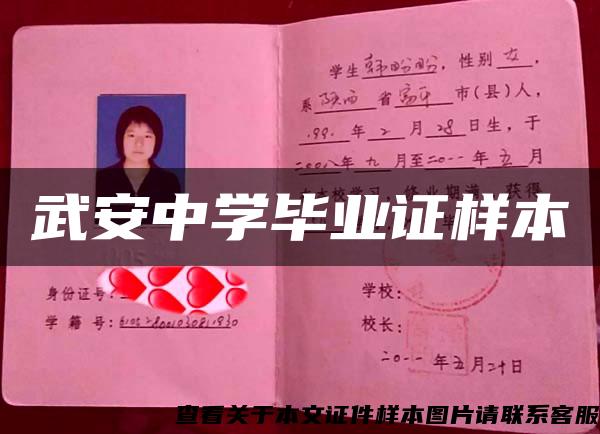 武安中学毕业证样本
身份证号:
学籍号:
学生韩盼盼,性别女,
系陕西省富平市(县)人,
199 年2月28日生,于
二00八年九月至二0一一年五月
在本校学习,修业期满,获得
学校:
校长:
二0一一年五月二十日
查看关于本文证件样本图片请联系客服